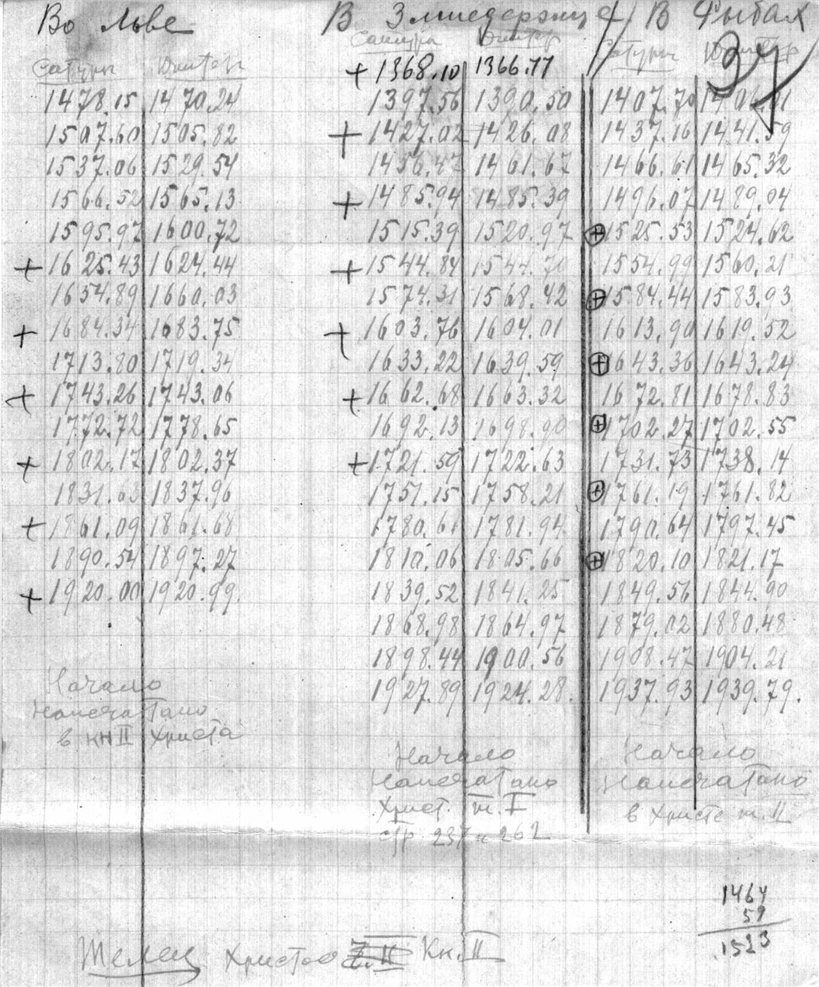 Во Льве
Сатурн Юпитер
1478.15 1470.24
1507.60 1505.82
1537.06 1529.54
1566.52 1565.13
1595.97 1600.72
+ 1625.43 1624.44
1654.89 1660.03
+ 1684.34 1683.75
1713.80 1719.34
+ 1743.26 1743.06
1772.72 1778.65
+ 1802.17 1802.37
1831.63 1837.96
+ 1861.09 1861.68
1890.54 1897.27
+ 1920.00 1920.99
Начало
напечатано
в кн II Христа
В Змиедержце
Сатурн Юпитер
+ 1368.10 1366.77
1397.56 1390.50
+ 1427.02 1426.08
1456.47 1461.67
+ 1485.94 1485.39
1515.39 1520.97
+ 1544.84 1544.70
1574.31 1568.42
+ 1603.76 1604.01
1633.22 1639.59
+ 1662.68 1663.32
1692.13 1698.90
+ 1721.59 1722.63
1751.15 1758.21
1780.61 1781.94
1810.06 1805.66
1839.52 1841.25
1868.98 1864.97
1898.44 1900.56
1927.89 1924.28.
Начало
напечатано
Христ. т. I
стр 237 и 262
В Рыбах
Сатурн Юпитер
37
1407.70
1437.16 1441.59
1466.61 1465.32
1496.07 1489.04
⊕ 1525.53 1524.62
1554.99 1560.21
⊕ 1584.44 1583.93
1613.90 1619.52
⊕ 1643.36 1643.24
1672.81 1678.83
⊕ 1702.27 1702.55
1731.73 1738.14
⊕ 1761.19 1761.82
1790.64 1797.45
⊕ 1820.10 1821.17
1849.56 1844.90
1879.02 1880.48
1908.47 1904.21
1937.93 1939.79.
Начало
напечатано
в Христе т. II
1464
59
1523
Телец Христос Кн. II